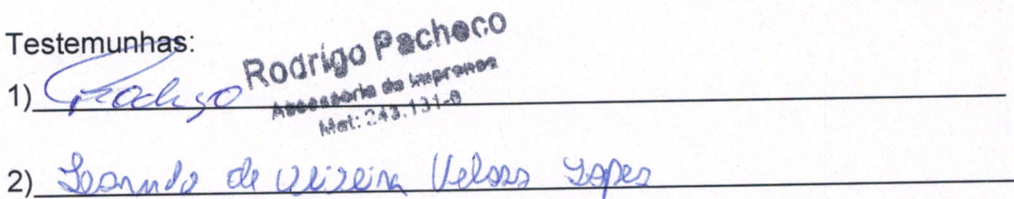 Testemunhas:
1) Rodrigo
Rodrigo Pacheco
Assessoria de Imprensa
Mat: 243.131-9
2) Leonardo de Oliveira Veloso Lopes